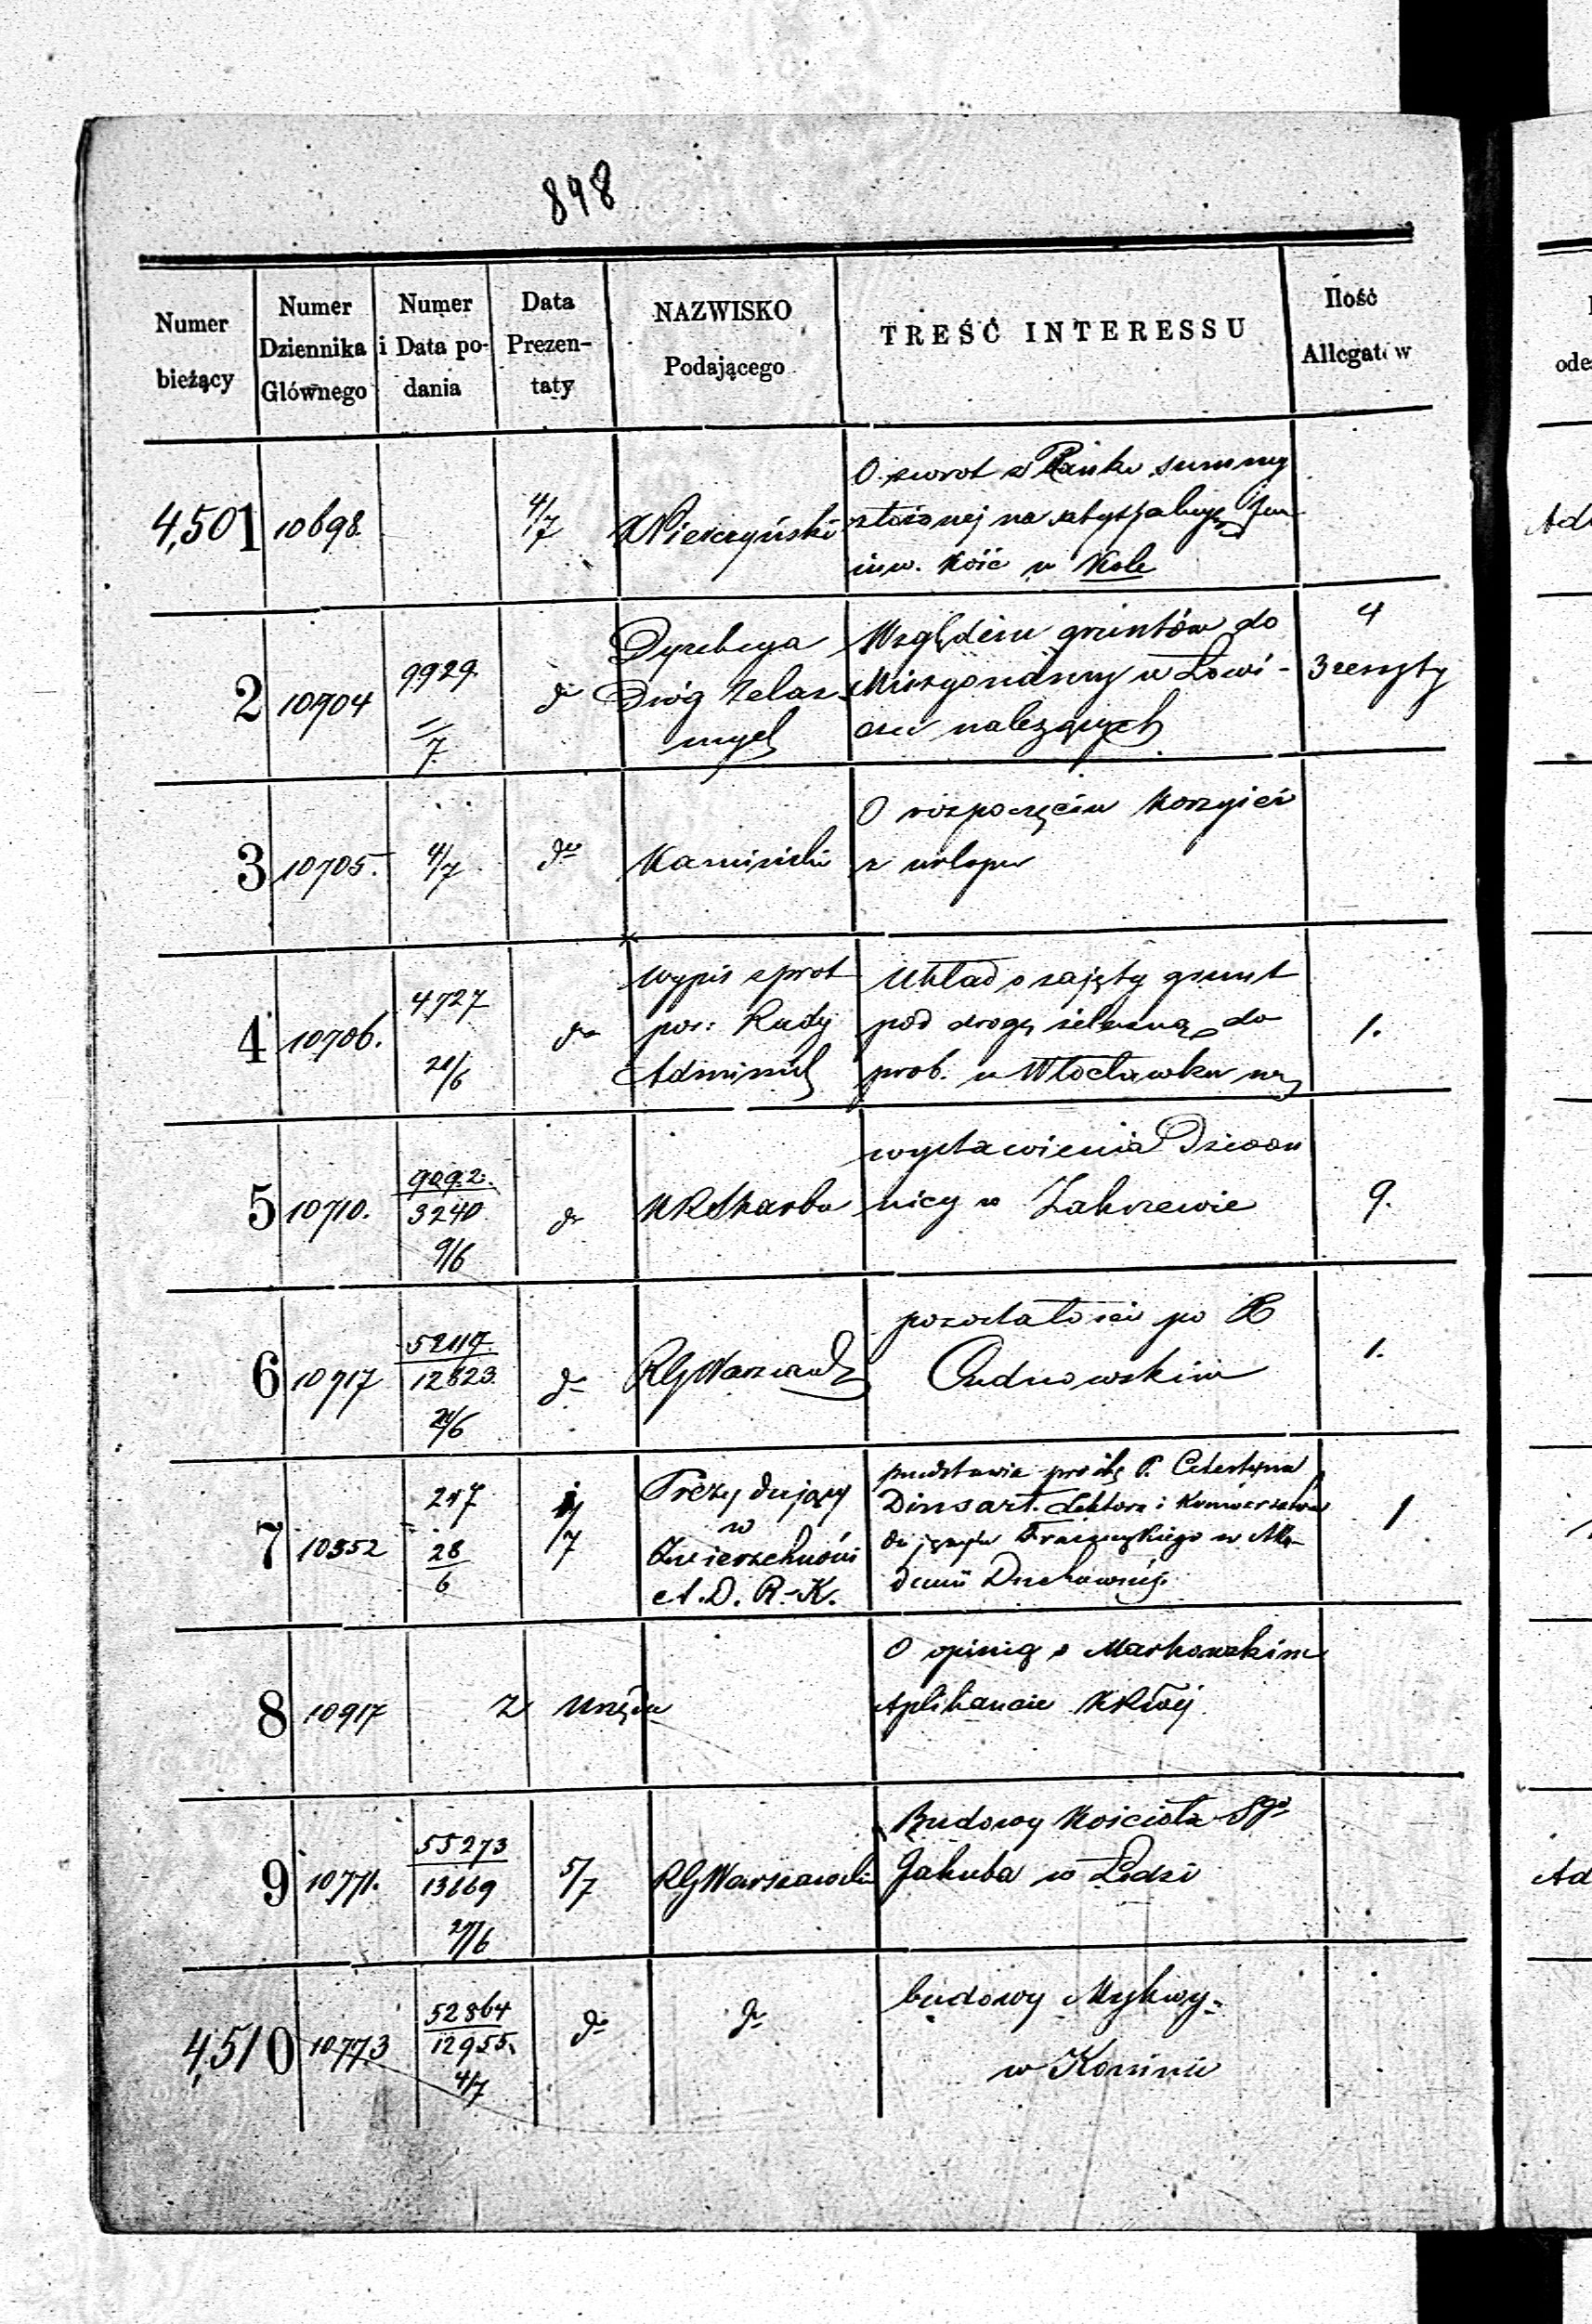 898
Numer bieżący
Numer Dziennika Głównego
Numer i Data podania
Data Prezentaty
NAZWISKO Podającego
TREŚĆ INTERESSU
Ilość Allegatów
4,501 10698 4/7 Wierczyński
O zwrot z Banku summy
złożonej na
inw. Kość w Kole
2 10704 9929 /7 do
Dyrekcya
Dróg Żelaz-
nych
Względem gruntów do
Missyonarzy w Łowi-
czu należących
4
3 zeszyty
3 10705. 4/7 do Kamiński
O rozpoczęciu korzyści
z urlopu
4 10706. 4727 21/6 do
Wypis z prot
pos: Rady
Administ
Układ o zajęty grunt
pod drogę żelazną do
prob. w Włocławku
1.
5 10710. 9092. 3240 9/6 do
KRSkarbu
wystawienia Dzwon
nicy w Zakrzewie
9.
6 10717 52117. 12823. 21/6 do
RGWarszawsk
pozostałości po X
Cudnowskim
1.
7 10352 217 28/6 4/7
Prezydujący
w
Zwierzchności
A. D. R.-K.
przedstawia prośbę P. Celestyna
Dinsart. Lektora i Konwersatora
do języka Francuzkiego w Aka-
demii Duchownéj.
1
8 10917 Z Urzędu
O opinią o Markowskim
Aplikancie KRłéj
9 10771. 55273 13669 27/6 5/7
RGWarszawski
Budowy Kościoła Sgo
Jakuba w Łodzi
4,510 10773 52864 12955. 4/7 do do
budowy Mykwy
w Koninie